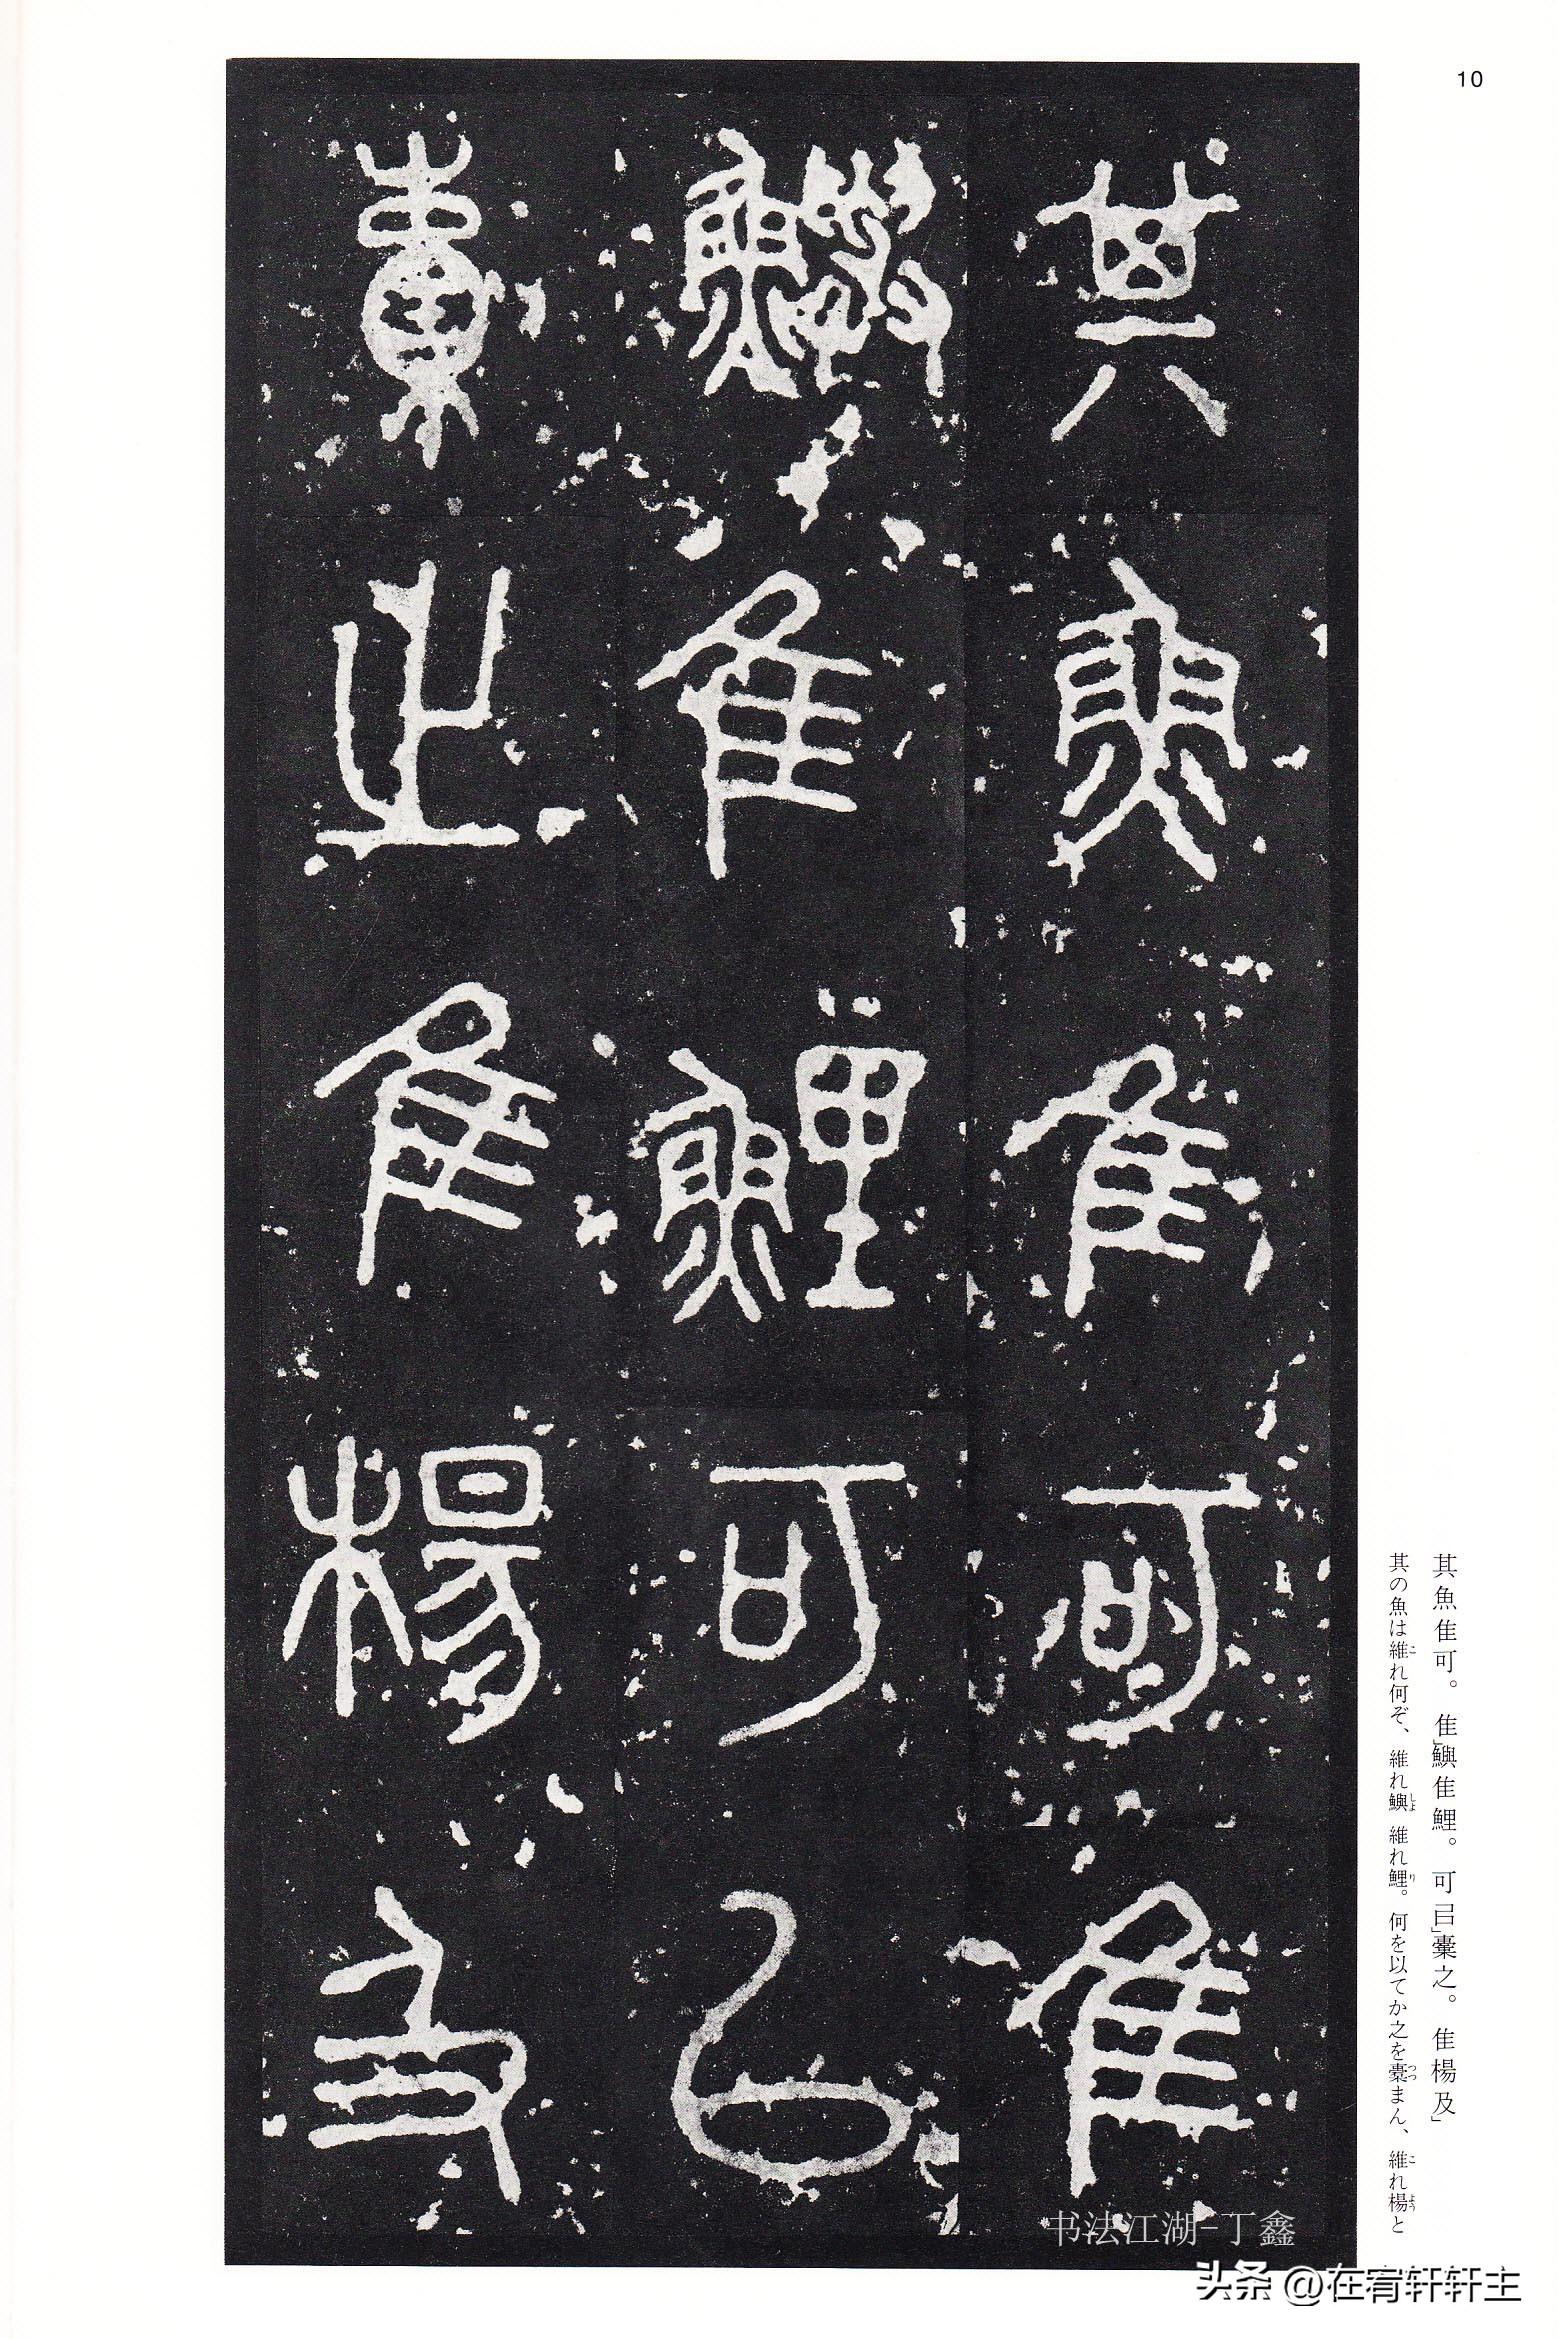 10
其魚隹可隹
鱮隹鯉可㠯
橐之隹楊及
其魚隹可。隹」鱮隹鯉。可㠯」橐之。隹楊及」
其の魚は維れ何ぞ、維れ鱮維れ鯉。何を以てか之を橐まん、維れ楊と
书法江湖-丁鑫
头条 @在宥轩轩主